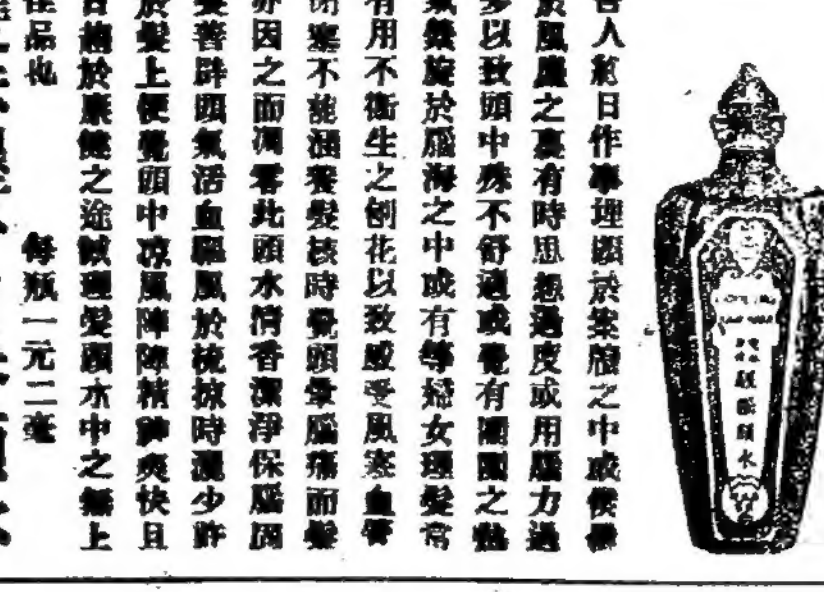 吾人於日作事埋頭於案牘之中或僕僕
於風塵之裏有時思想過度或用腦力過
多以致頭中殊不舒適或覺有悶之熱
氣盤旋於腦海之中或有等婦女理髮常
有用不衛生之刨花以致感受風寒血管
閉塞不能涵養髮枝時覺頭暈腦痛而髮
亦因之而凋零此頭水清香潔淨保腦固
髮善辟頭氣活血驅風於梳掠時灑少許
於髮上便覺頭中涼風陣陣精神爽快且
日趨於康健之途誠理髮頭水中之無上
佳品也 每瓶一元二毫
頭水